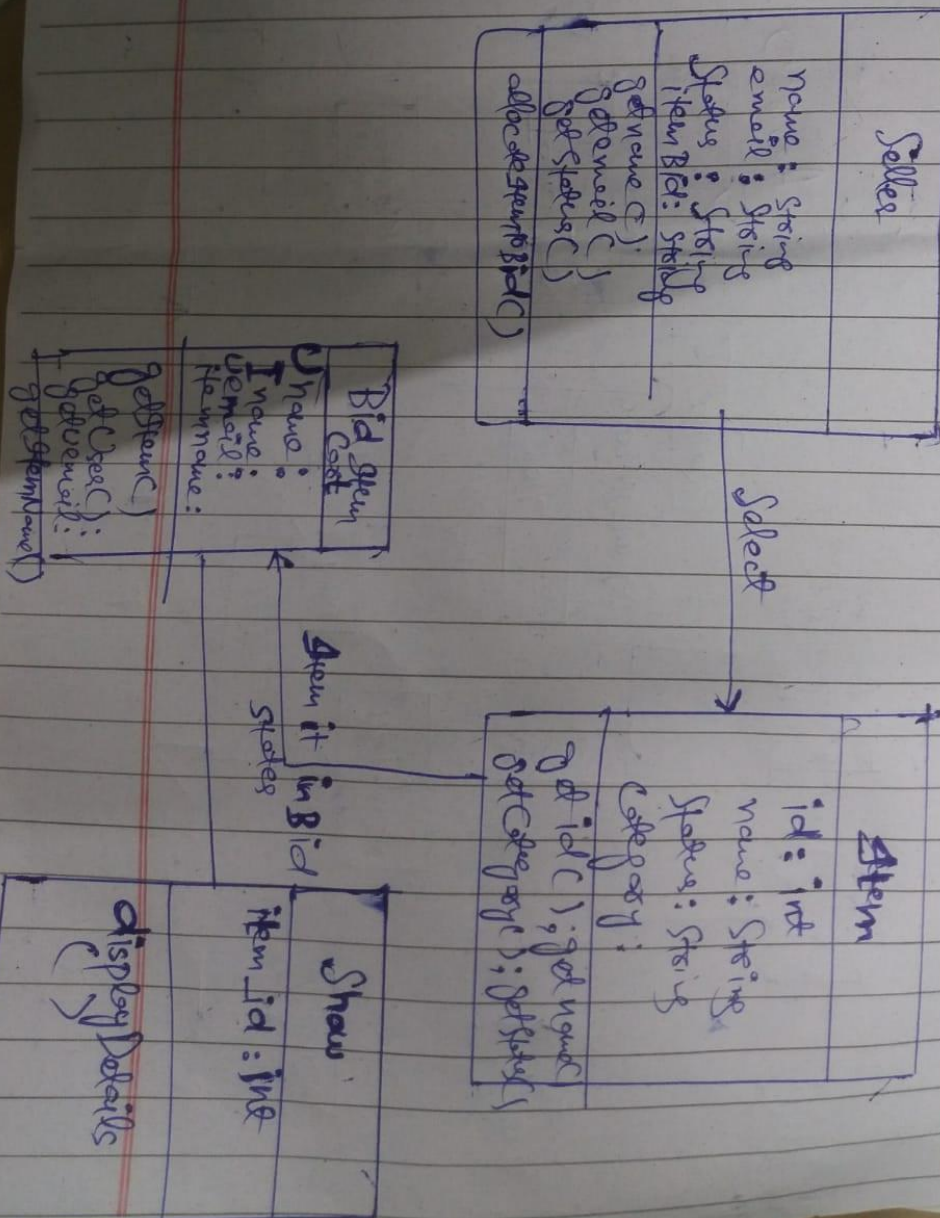 Seller
name : String
email : String
Status : String
itemBid : String
getname() ;
getemail()
getStatus()
allocateItemtoBid()
Select
Item
id : int
name : String
Status : String
Category :
getid() ; getname()
getCategory() ; getStatus()
Item it in Bid
States
Bid Item
Cost
Uname :
Iname :
Uemail :
Itemname :
getItem()
getUser() ;
getUemail :
getItemName()
Show
item_id : int
displayDetails
()